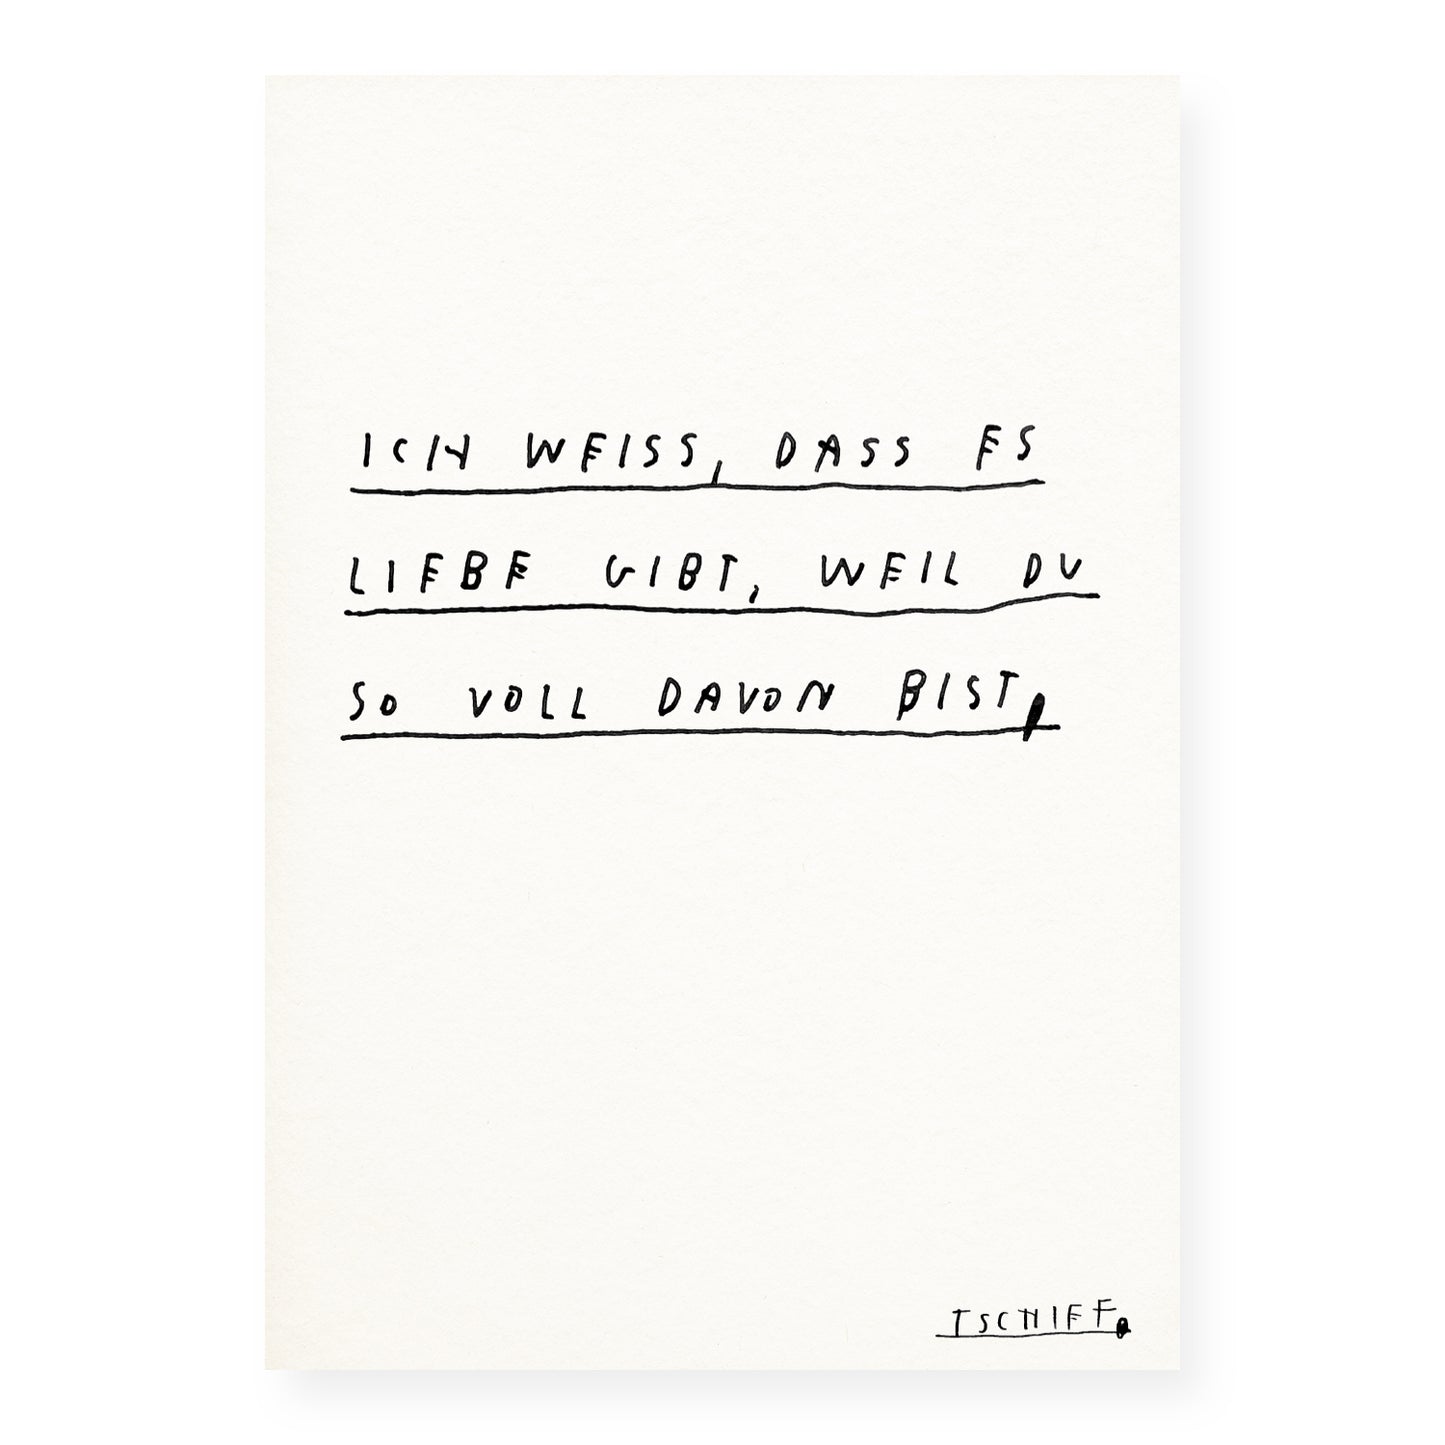 ICH WEISS, DASS ES
LIEBE GIBT, WEIL DU
SO VOLL DAVON BIST.
TSCHIEF.